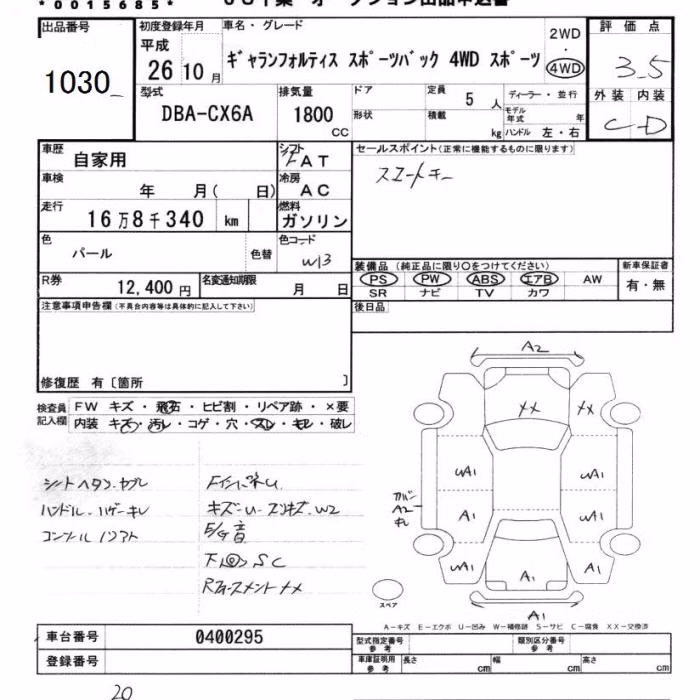 *0015685*
出品番号 初度登録年月 車名・グレード 2WD ・ 4WD 評価点
平成 26年 10月 ギャランフォルティス スポーツバック 4WD スポーツ 3.5
1030
型式 排気量 ドア 定員 ディーラー・並行 外装 内装
DBA-CX6A 1800 CC 5人 モデル年式 年 C D
形状 積載 kg ハンドル 左・右
車歴 自家用 シフト FAT セールスポイント(正常に機能するものに限ります)
スマートキー
車検 年 月( 日) 冷房 AC
走行 16万8千340 km 燃料 ガソリン
色 パール 色替 色コード W13
装備品 (純正品に限り○をつけてください) 新車保証書
PS PW ABS エアB AW 有・無
SR ナビ TV カワ
R券 12,400円 名変通知期限 月 日
注意事項申告欄(不具合内容等は具体的に記入して下さい) 後日品
修復歴 有〔箇所 〕
検査員記入欄 FW キズ・飛石・ヒビ割・リペア跡・×要
内装 キズ・汚レ・コゲ・穴・スレ・モレ・破レ
A2
XX XX
UA1 UA1
A1 UA1
UA1 A1 A1
A2
キレ
A1
ハンドル
キズ・U・スリキズ・W2
E/G音
スペア
A-キズ E-エクボ U-凹み W-補修跡 S-サビ C-腐食 XX-交換済
車台番号 0400295
登録番号
型式指定番号 参考 類別区分番号 参考
車庫証明用 参考 長さ cm 幅 cm 高さ cm
20